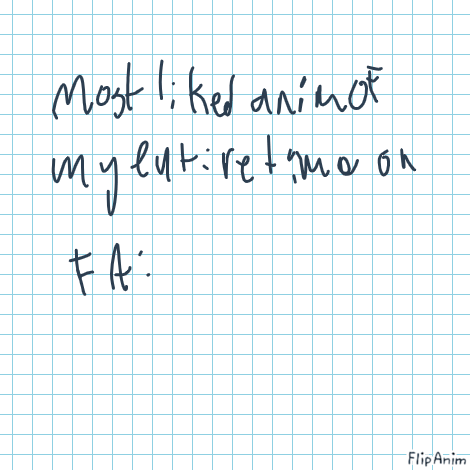 Most liked anim of
my entire time on
FA:
FlipAnim